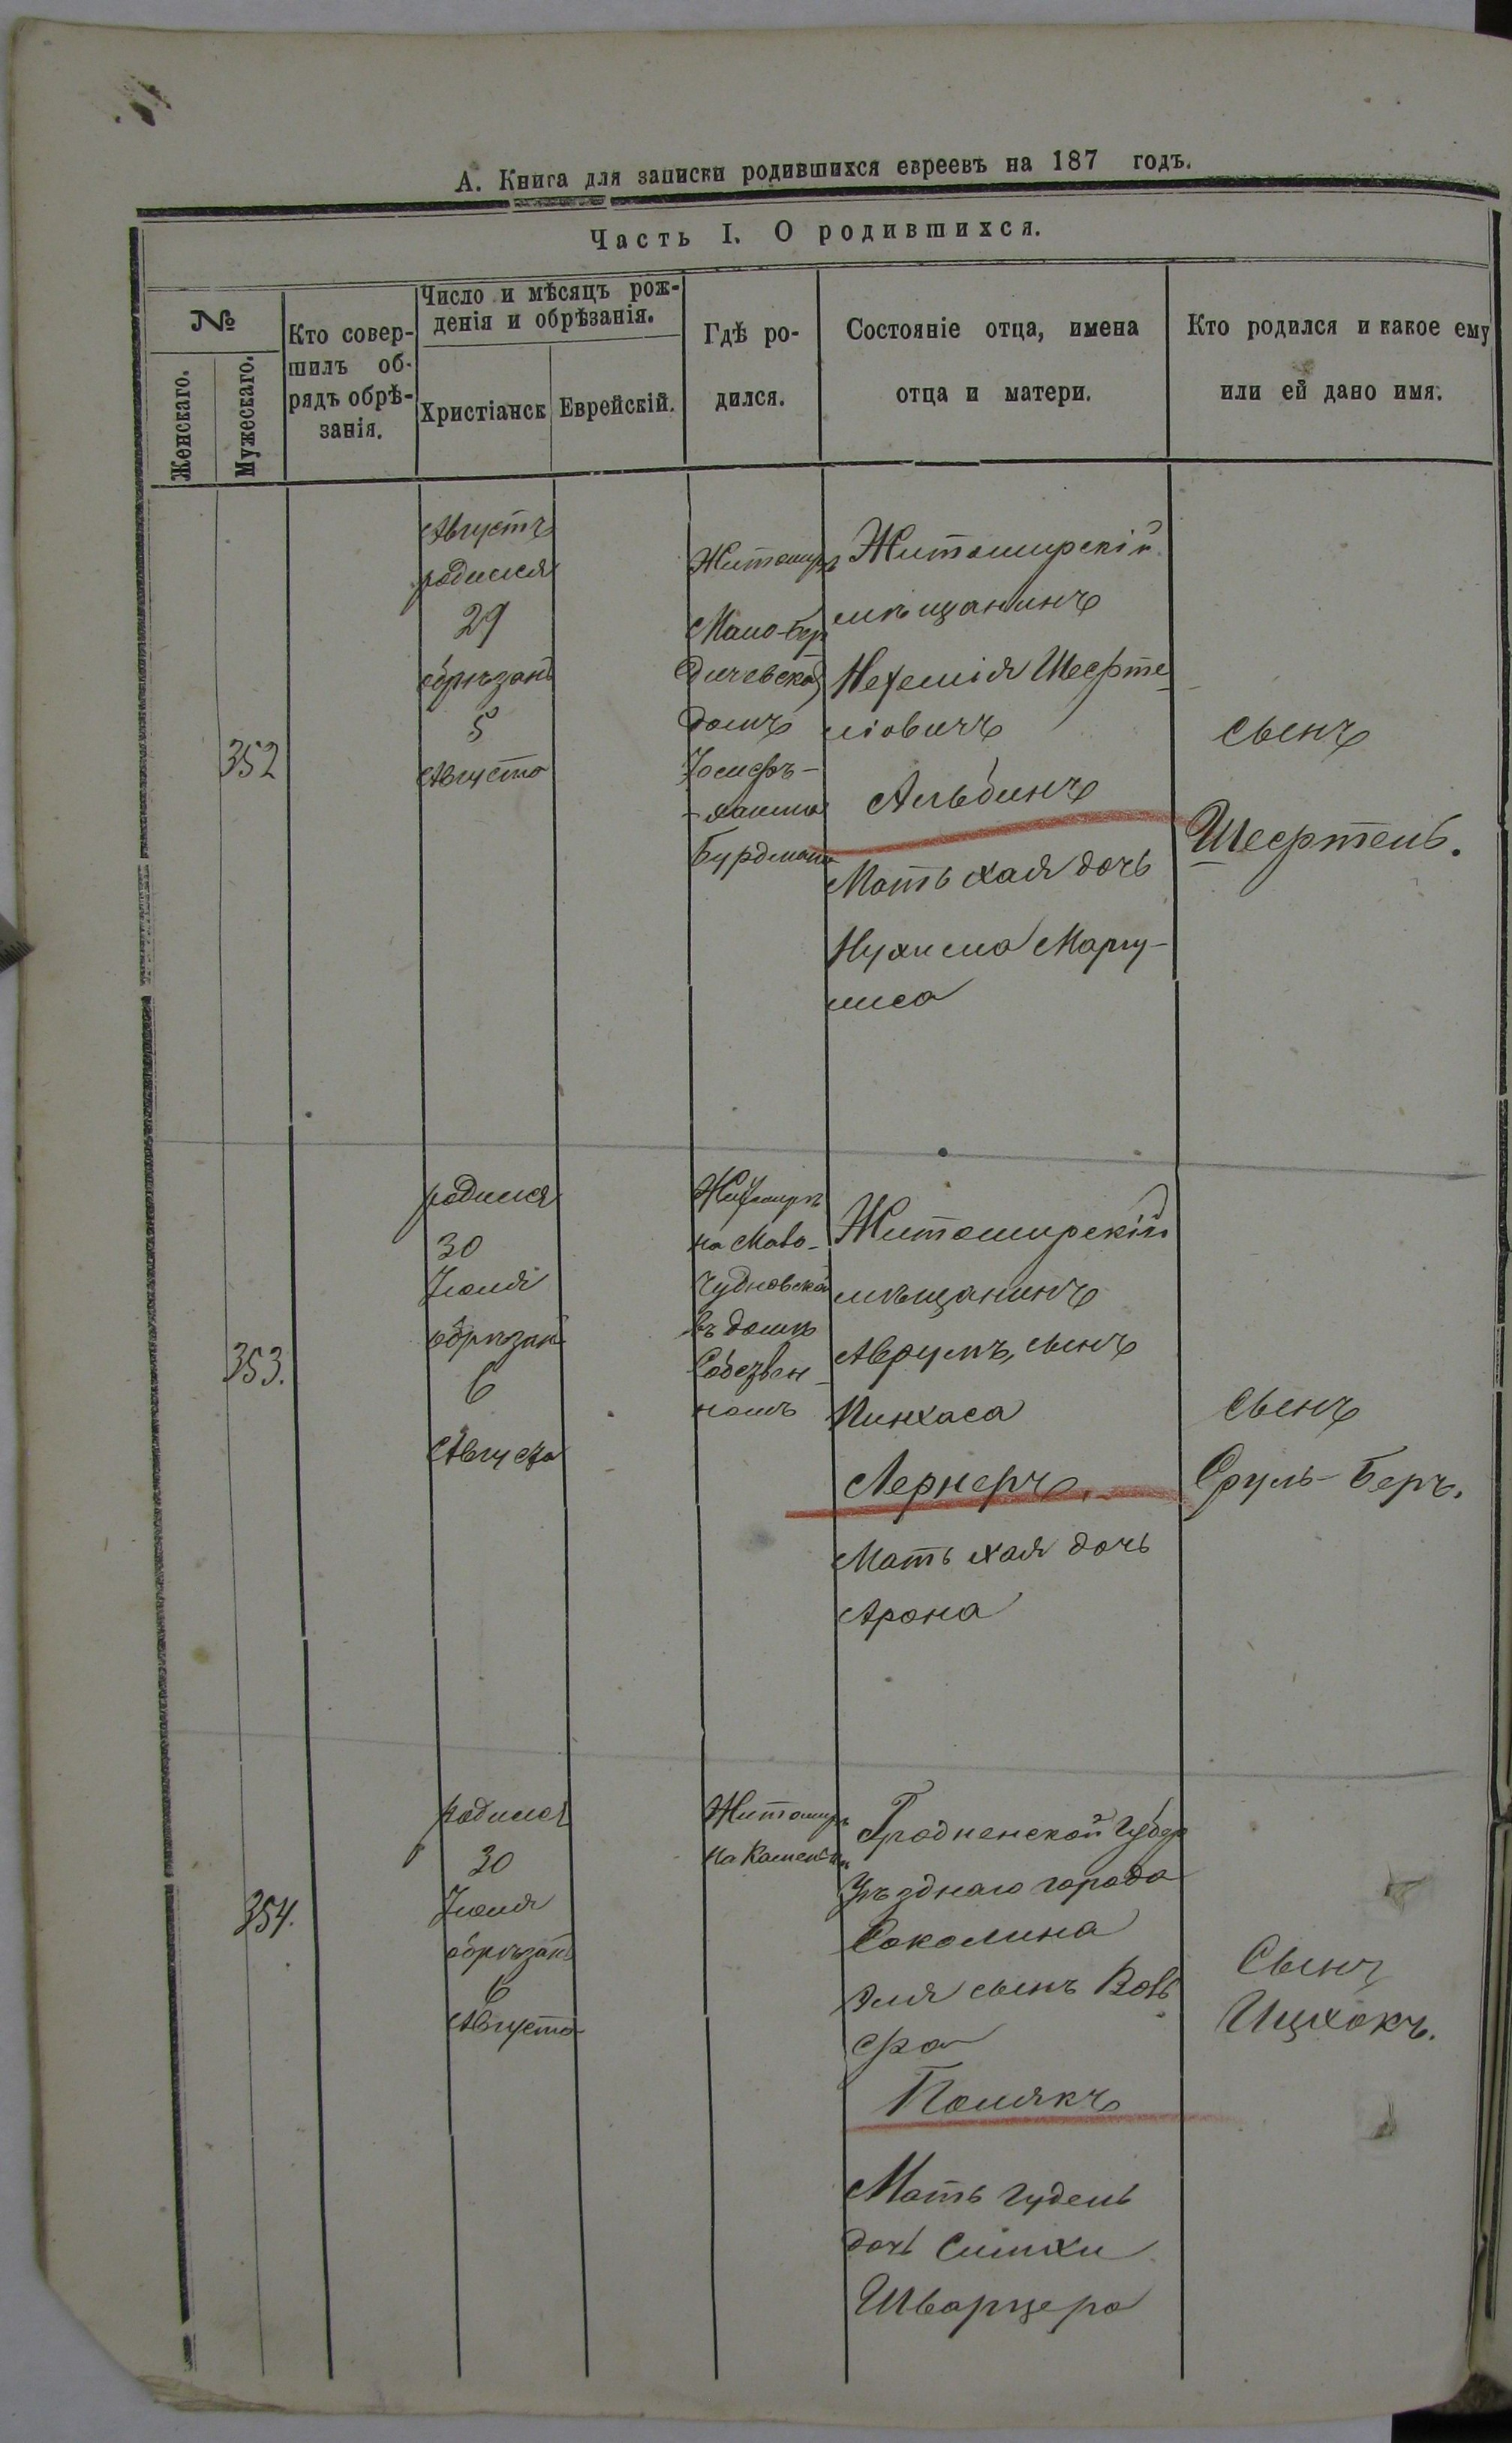 А. Книга для записки родившихся евреевъ на 187 годъ.
Часть I. О родившихся.
№
Женскаго.
Мужескаго.
Кто совер-
шилъ об-
рядъ обрѣ-
занія.
Число и мѣсяцъ рож-
денія и обрѣзанія.
Христіанск
Еврейскій.
Гдѣ ро-
дился.
Состояніе отца, имена
отца и матери.
Кто родился и какое ему
или ей дано имя.
352
Августъ
родился
29
обрѣзанъ
5
Августа
Житомиръ
Мало-бер
дичевской
домъ
Бурдмана
Житомирскій
мѣщанинъ
Нехемія Шефте
ліовичъ
Альбинъ
Мать Хая дочь
Нухима Маргу-
лиса
сынъ
Шефтель.
353.
родился
30
Іюля
обрѣзанъ
6
Августа
Житомиръ
на Мало-
Чудновской
въ домѣ
Собствен-
номъ
Житомирскій
мѣщанинъ
Аврумъ, сынъ
Пинхаса
Лернеръ.
Мать Хая дочь
Арона
сынъ
Сруль-Беръ.
354.
родился
30
Іюля
обрѣзанъ
6
Августа
Житомиръ
на
Гродненской Губер
Уѣзднаго города
Соколина
Эля сынъ Воль
фа
Полякъ
Мать Гудель
дочь Симхи
Шварцера
Сынъ
Ицхокъ.